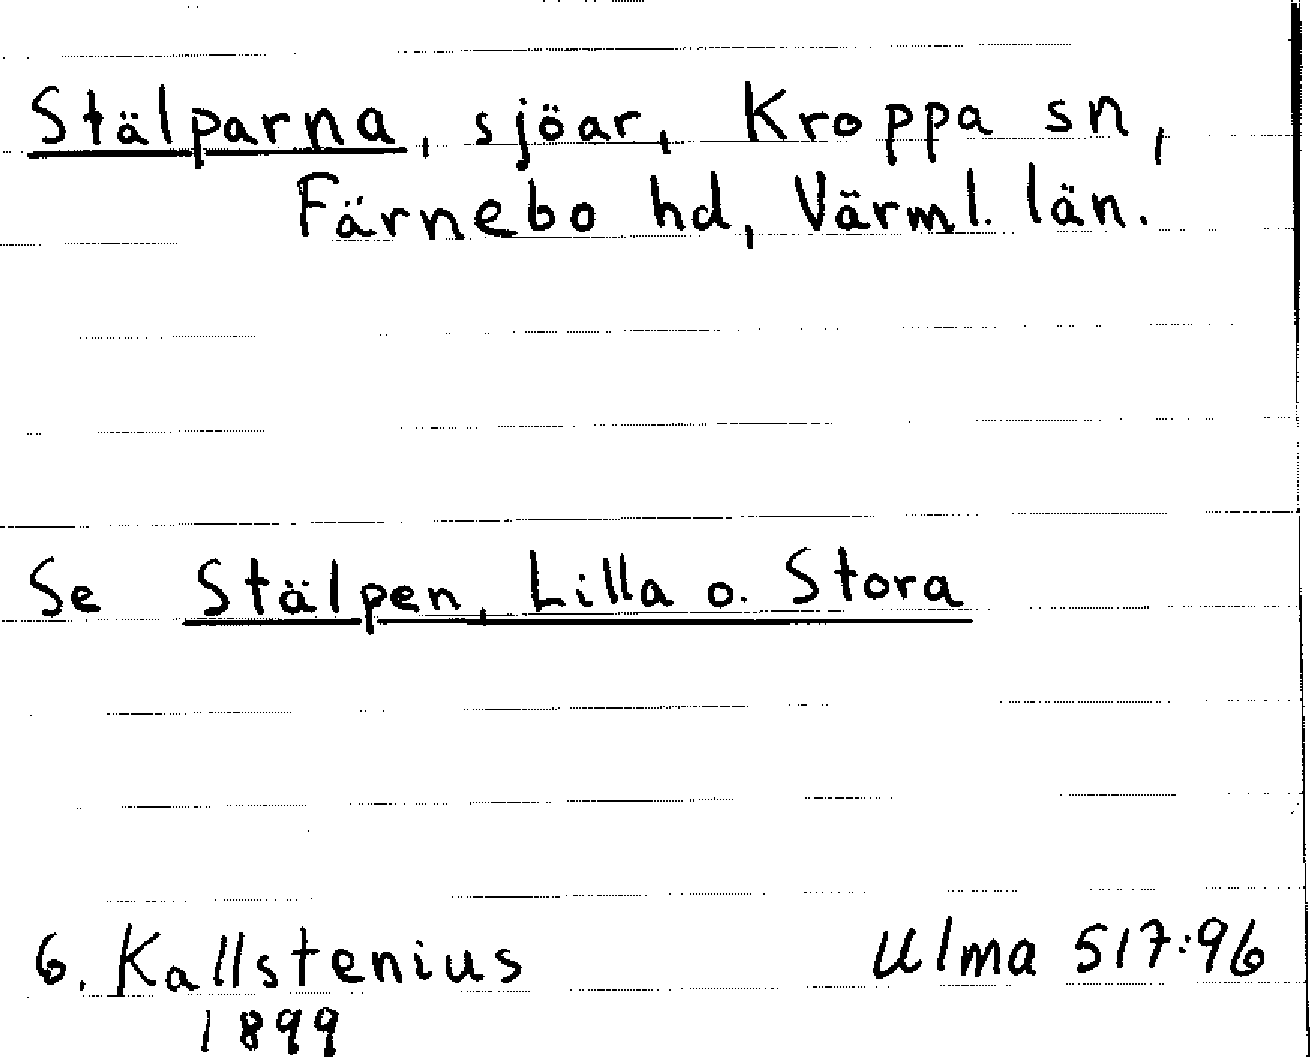 Stälparna, sjöar, Kroppa sn,
Färnebo hd, Värml. län.
Se Stälpen, Lilla o. Stora
G. Kallstenius Ulma 517:96
1899